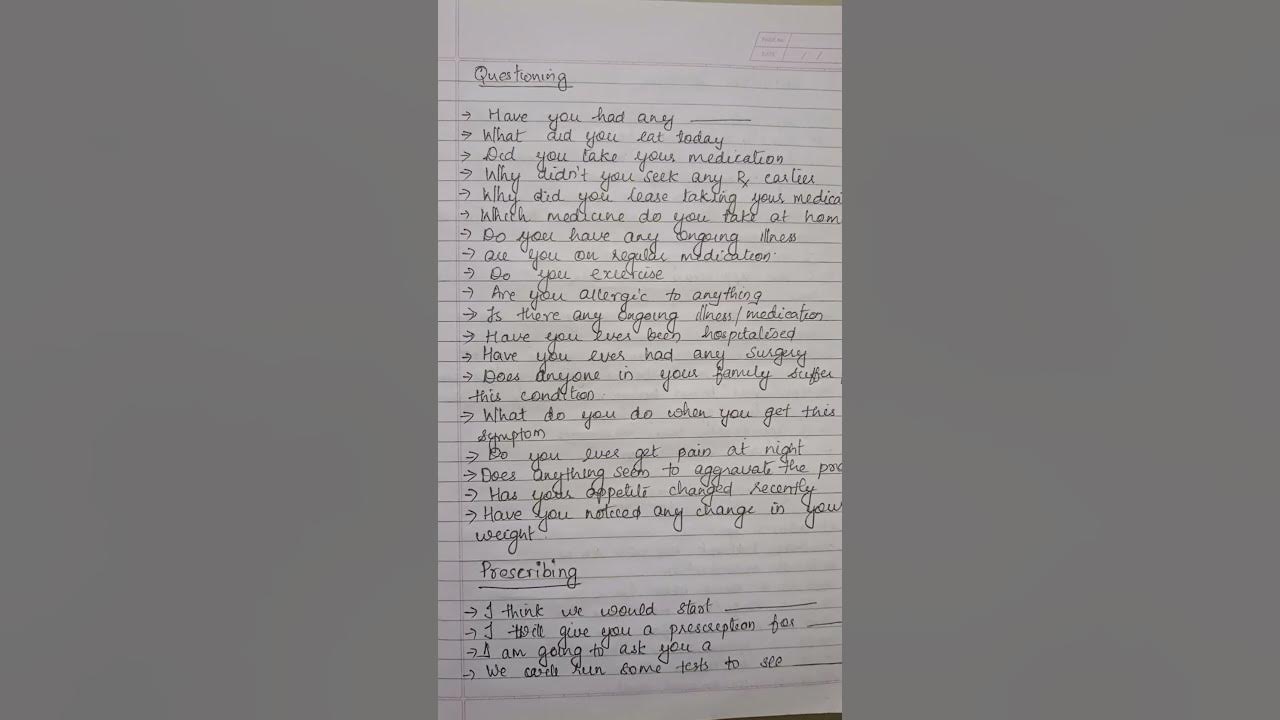 PAGE NO.
DATE / /
Questioning
→ Have you had any ______
→ What did you eat today
→ Did you take your medication
→ Why didn't you seek any ℞ earlier
→ Why did you cease taking your medica
→ Which medicine do you take at hom
→ Do you have any ongoing illness
→ are you on regular medication.
→ Do you exercise
→ Are you allergic to anything
→ Is there any ongoing illness/medication
→ Have you ever been hospitalised
→ Have you ever had any surgery
→ Does anyone in your family suffer
this condition.
→ What do you do when you get this
symptom
→ Do you ever get pain at night
→ Does anything seem to aggravate the pro
→ Has your appetite changed recently
→ Have you noticed any change in you
weight.
Prescribing
→ I think we would start ______
→ I will give you a prescreption for ___
→ I am going to ask you a
→ We run some tests to see ___